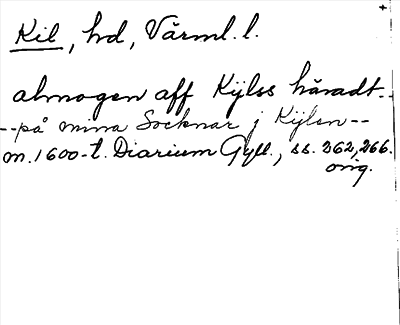 Kil, hd, Värml. l.
almogen aff Kÿlss häradt--
--på mina Socknar j Kÿlen--
m. 1600-t. Diarium Gyll., ss. 262, 266.
orig.